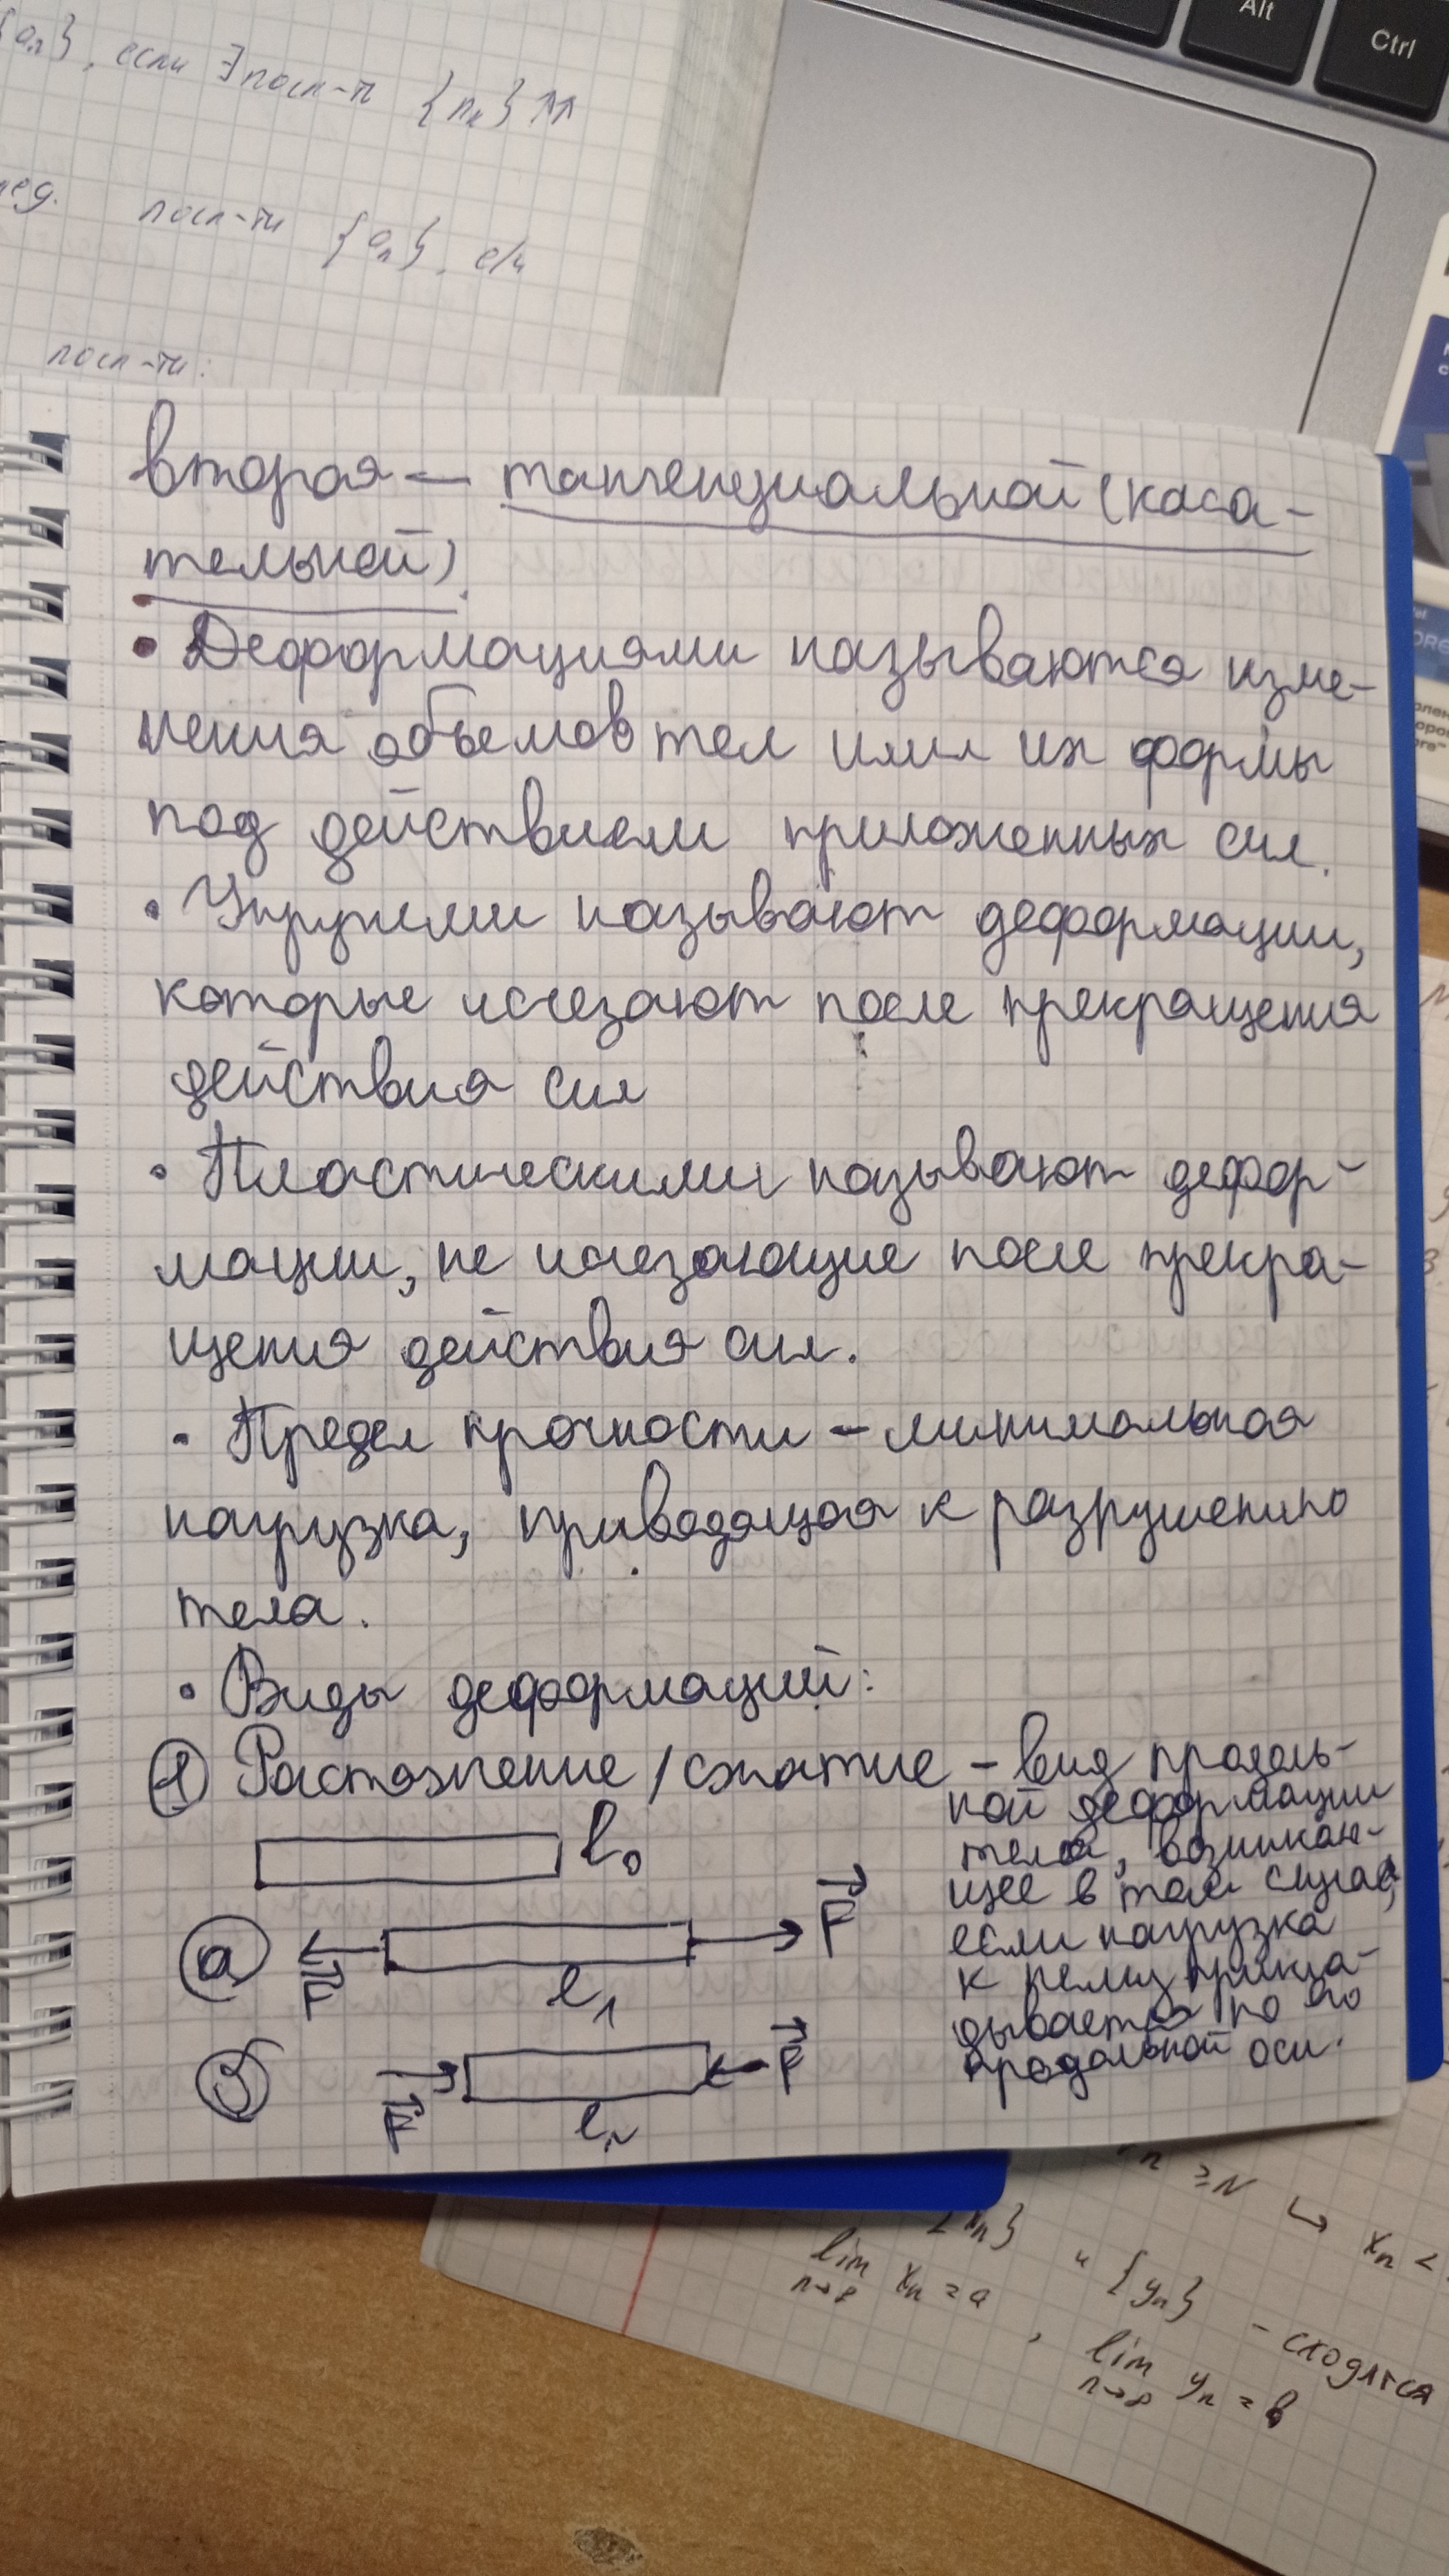 Alt
Ctrl
{aₙ}, если ∃ посл-ть {nₖ} ↑↑
посл-ти {aₙ}, е/ч
посл-ти:
вторая — тангенциальной (каса-
тельной).
• Деформациями называются изме-
нения объемов тел или их формы
под действием приложенных сил.
• Упругими называют деформации,
которые исчезают после прекращения
действия сил
• Пластическими называют дефор-
мации, не исчезающие после прекра-
щения действия сил.
• Предел прочности – минимальная
нагрузка, приводящая к разрушению
тела.
• Виды деформаций:
① Растяжение / сжатие – вид продоль-
ной деформации
тела, возникаю-
щее в том случае,
если нагрузка
к нему прикла-
дывается по его
продольной оси.
l₀
а F l₁ F
б F l₂ F
n ≥ N ↪ xₙ <
{xₙ} и {yₙ} – сходятся
lim xₙ = a, lim yₙ = b
n→∞ n→∞